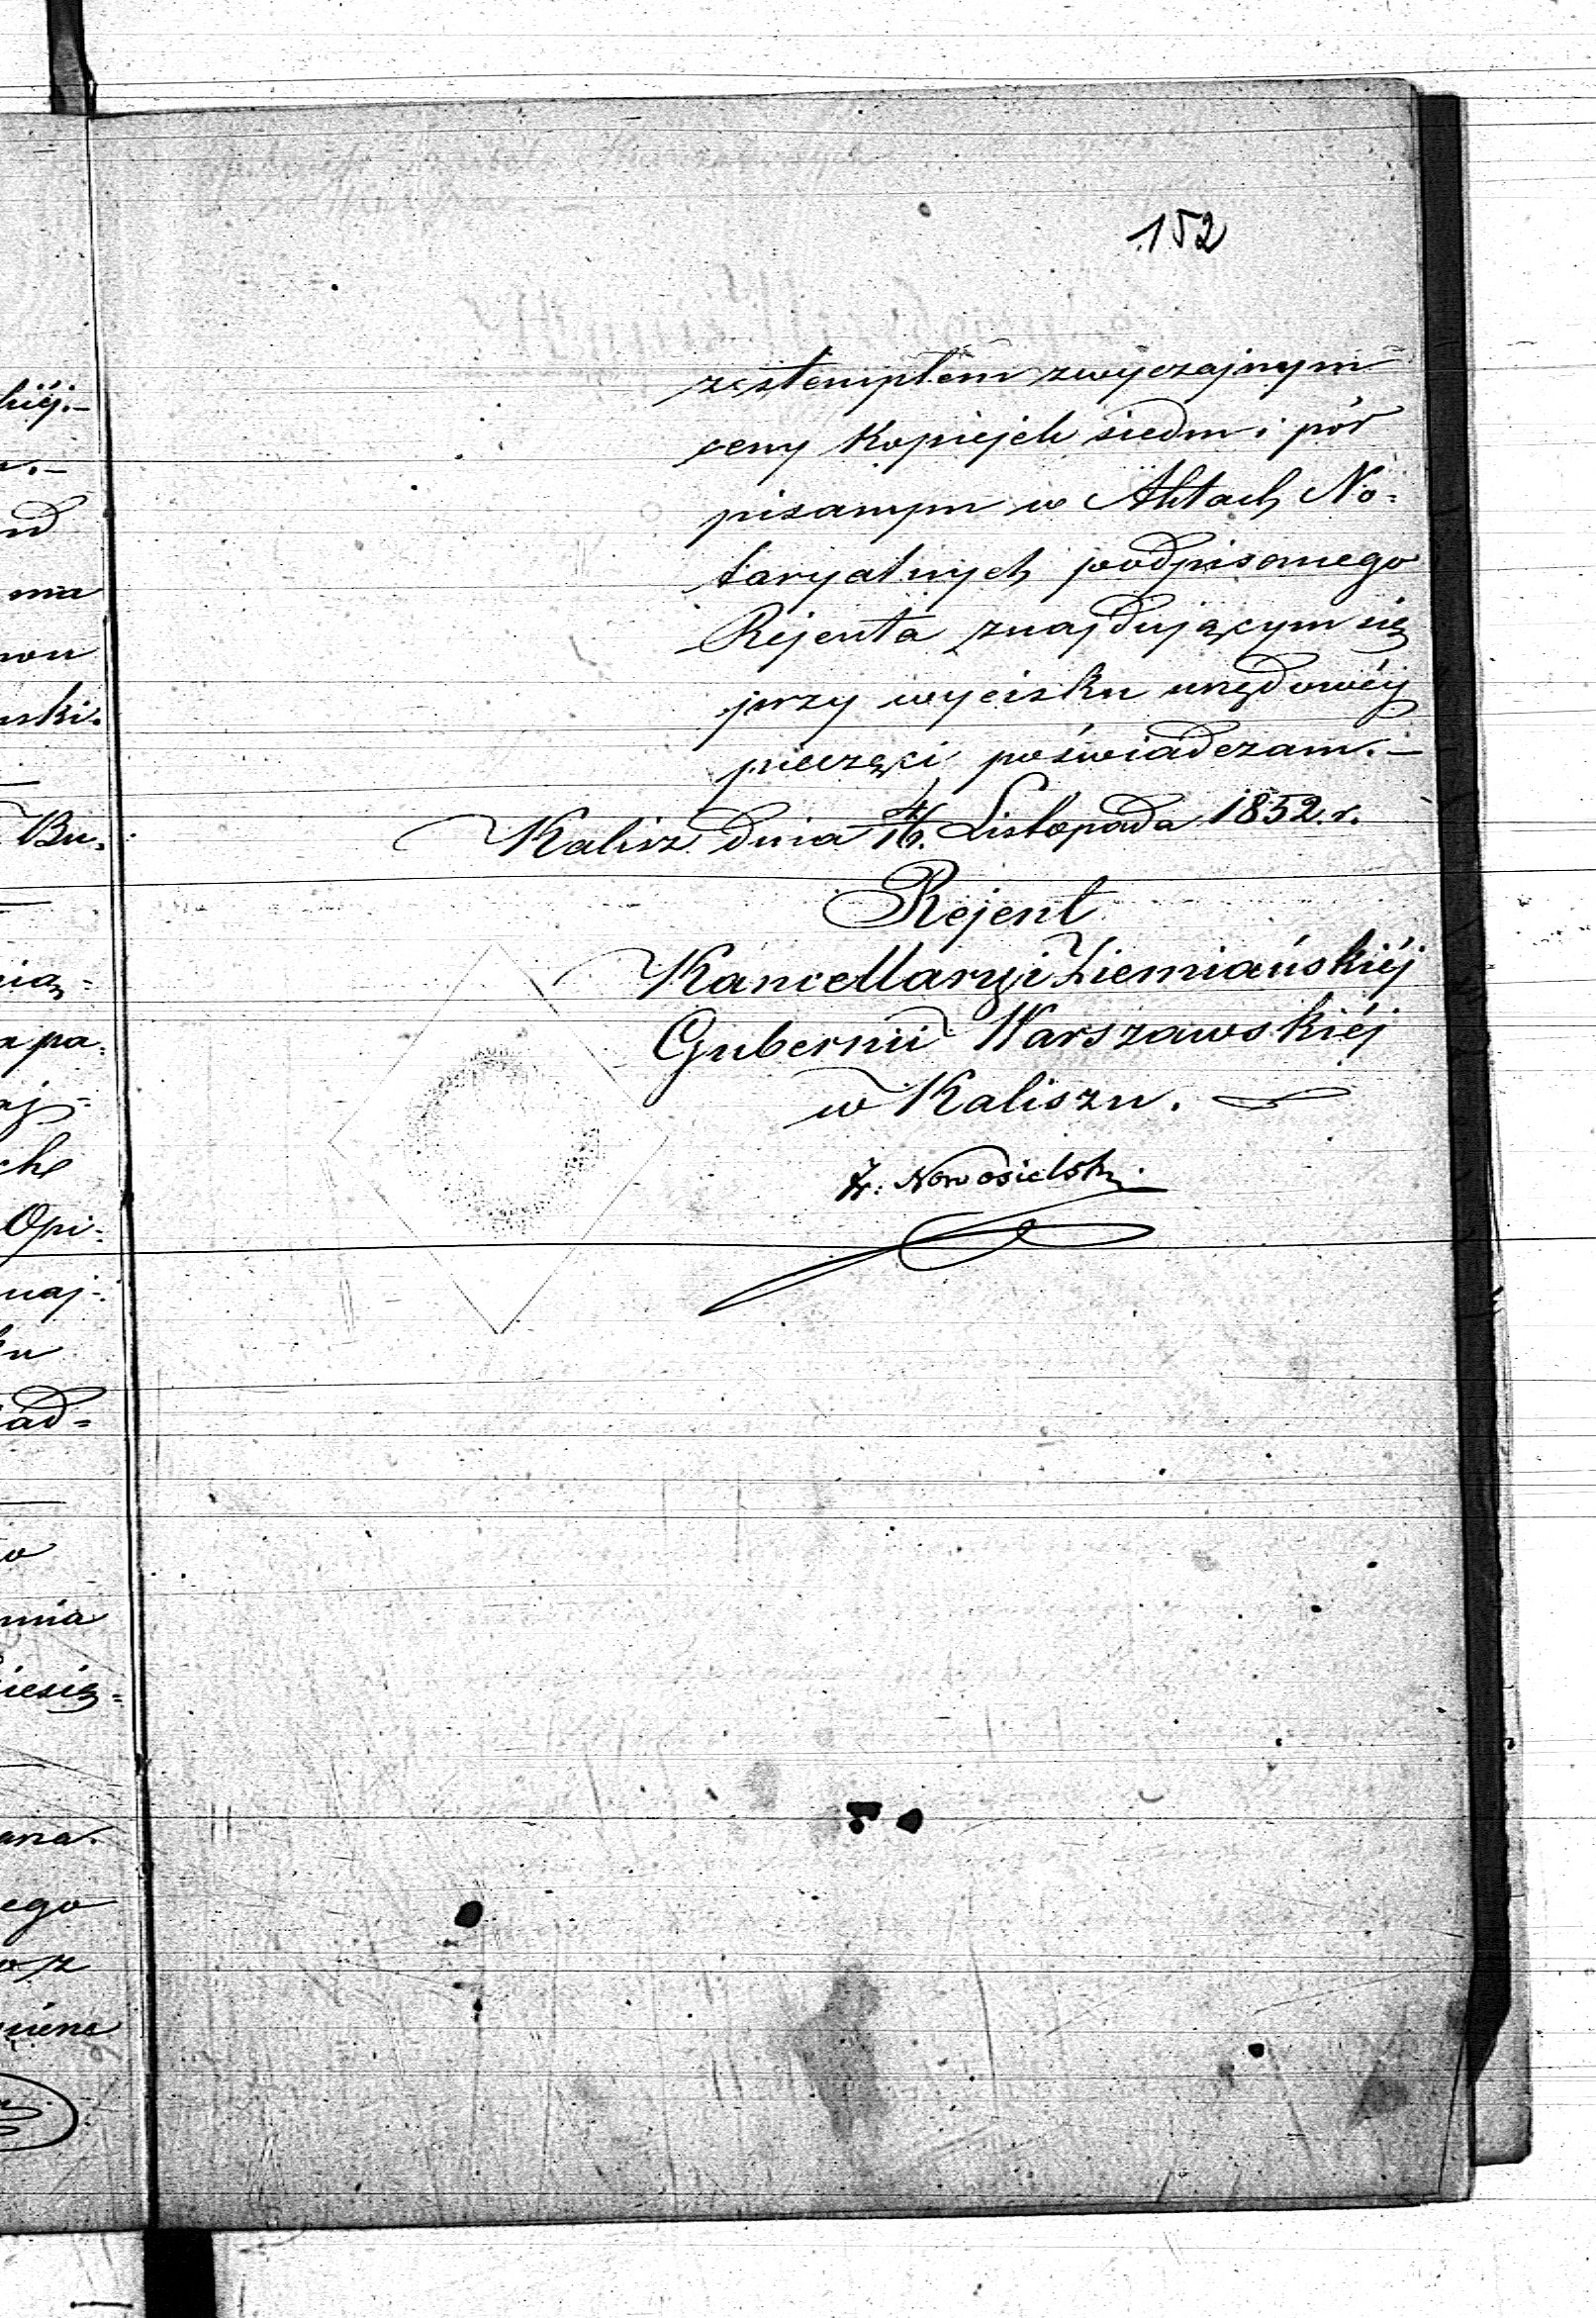 152
ze stemplem zwyczajnym
ceny Kopiejek siedm i pół
pisanym w Aktach No=
taryalnych podpisanego
Rejenta znajdującym się
przy wycisku urzędowéj
pieczęci poświadczam.—
Kalisz dnia 4/16. Listopada 1852. r.
Rejent
Kancellaryi Ziemiańskiéj
Gubernii Warszawskiéj
w Kaliszu.
Nowosielski
kiéj.—
ma
wski.
Bu=
a pa=
Opi=
naj=
iad=
nia
iesię=
ana.
ego